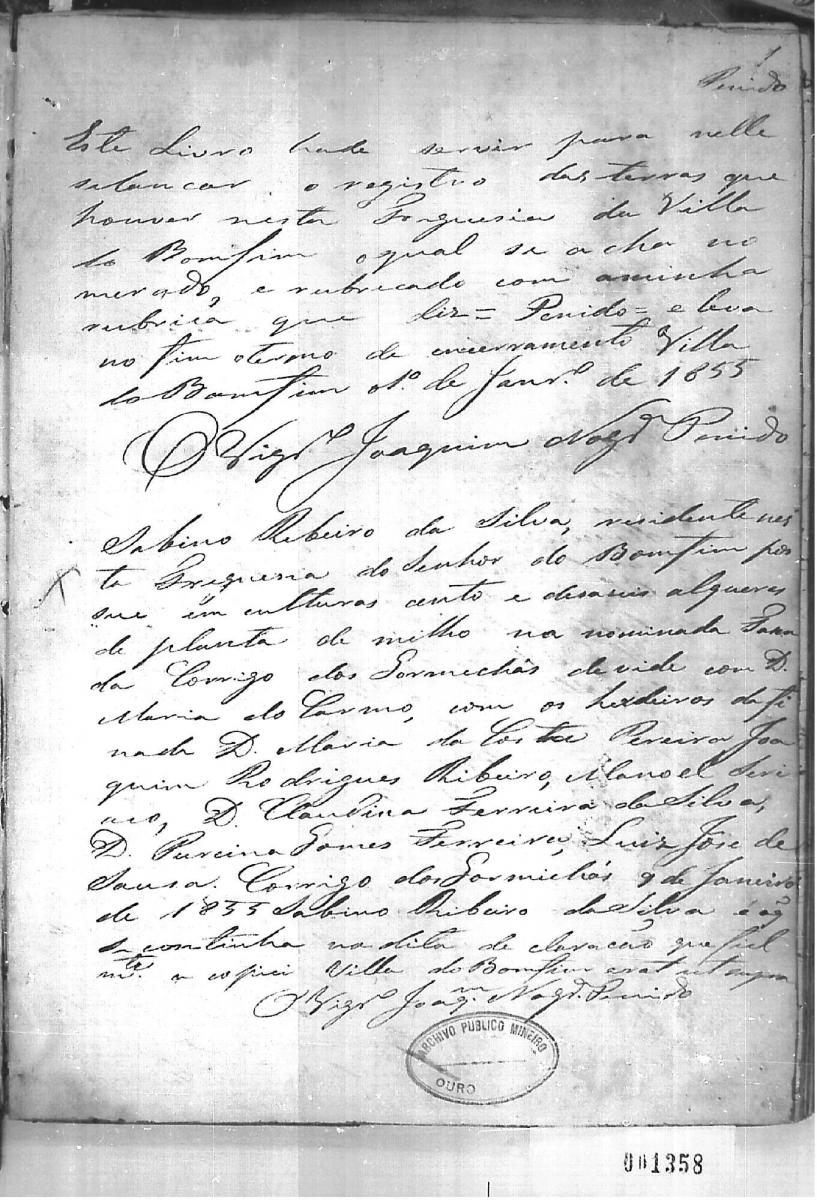 1
Penido
Este Livro hade servir para nelle
selancar o registro das terras que
houver nesta Freguesia da Villa
do Bomfim oqual se acha no
merado, e rubricado com aminha
rubrica que diz = Penido = e leva
no fim otermo de encerramento Villa
do Bomfim 1º de Janrº de 1855
O Vigrº Joaquim Nogrª Penido
Sabino Ribeiro da Silva, residente nes
ta Freguesia do Senhor do Bomfim pos
sue em culturas cento e desaseis alqueres
de planta de milho na nominada Fasen
da Corrigo dos devide com D.
Maria do Carmo, com os herdeiros dafi
nada D. Maria da Costa Pereira Joa
quim Rodrigues Ribeiro, Manoel Seri
aco, D. Claudina Ferreira da Silva,
D. Gomes Ferreira, Luiz Jose de
Sousa. Corrigo dos 9 de Janeiro
de 1855 Sabino Ribeiro da Silva é oq
se continha na dita de claracão que fiel
mte a copiei Villa do Bomfim erat ut supra
O Vigrº Joaqm Nogrª Penido
ARCHIVO PUBLICO MINEIRO
OURO
001358